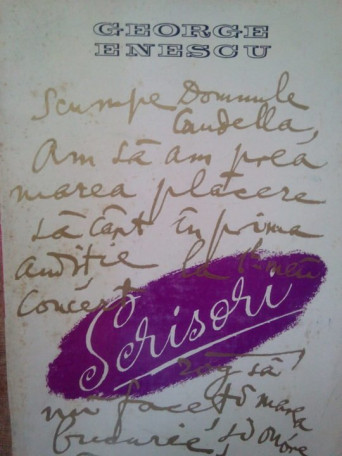 GEORGE
ENESCU
Scumpe Domnule
Caudella,
Am să am prea
marea plăcere
să cânt în prima
audiție la
Concert
Scrisori
rog să
nu face marea
bucurie, și